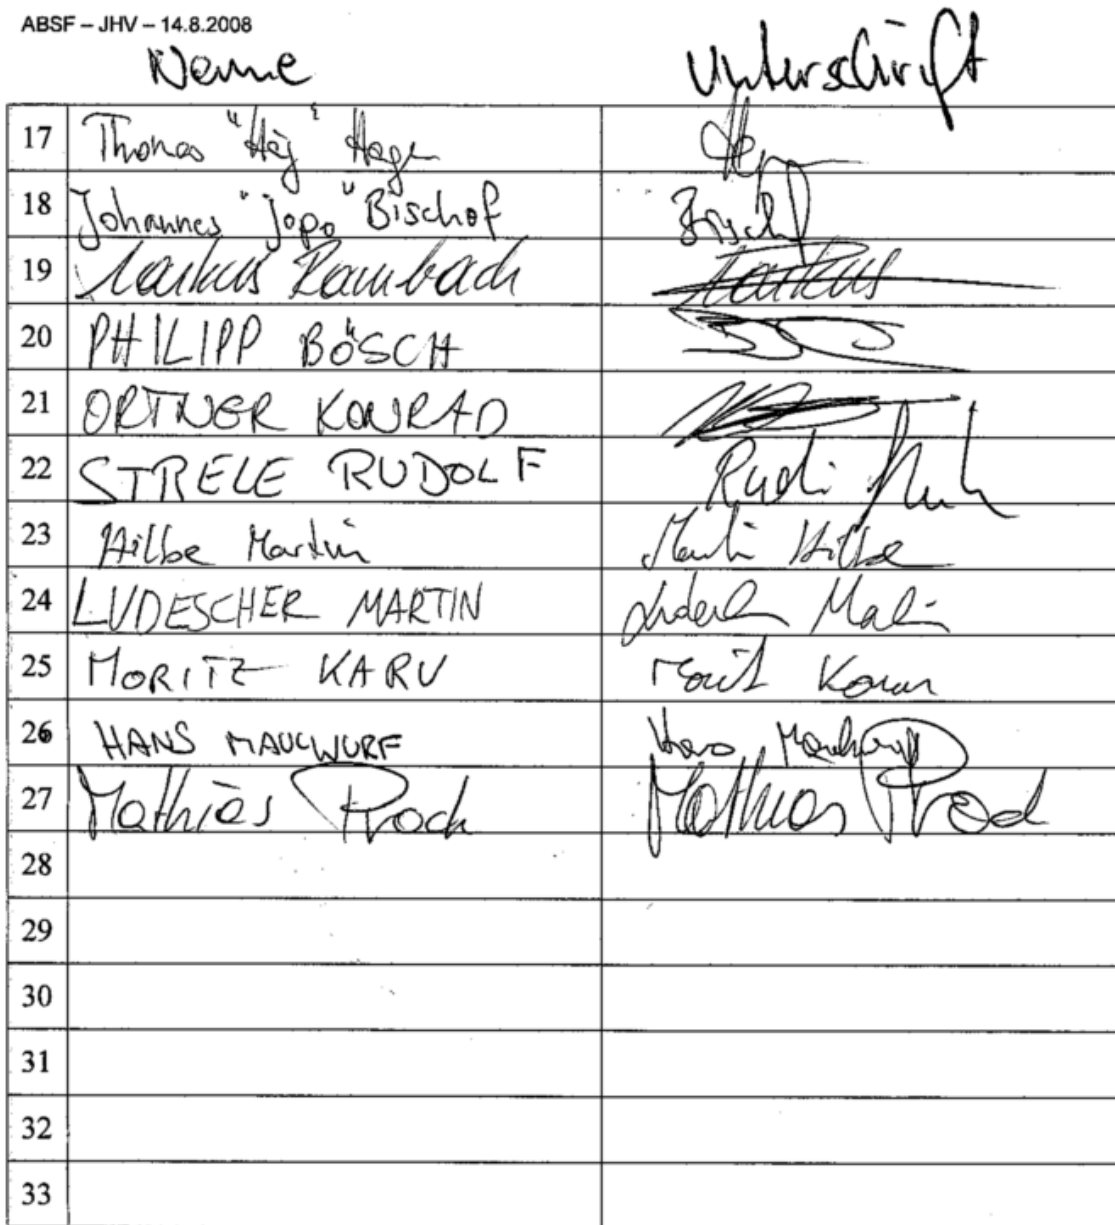 ABSF – JHV – 14.8.2008
Name Unterschrift
17 Thomas "Häj" Hagen
18 Johannes "Jopo" Bischof Bischof
19 Markus Rambach Markus
20 PHILIPP BÖSCH
21 ORTNER KONRAD
22 STRELE RUDOLF Rudi
23 Hilbe Martin Martin Hilbe
24 LUDESCHER MARTIN Martin
25 MORITZ KARU Moritz
26 HANS MAULWURF Hans Maulwurf
27 Mathias Prock Mathias
28
29
30
31
32
33